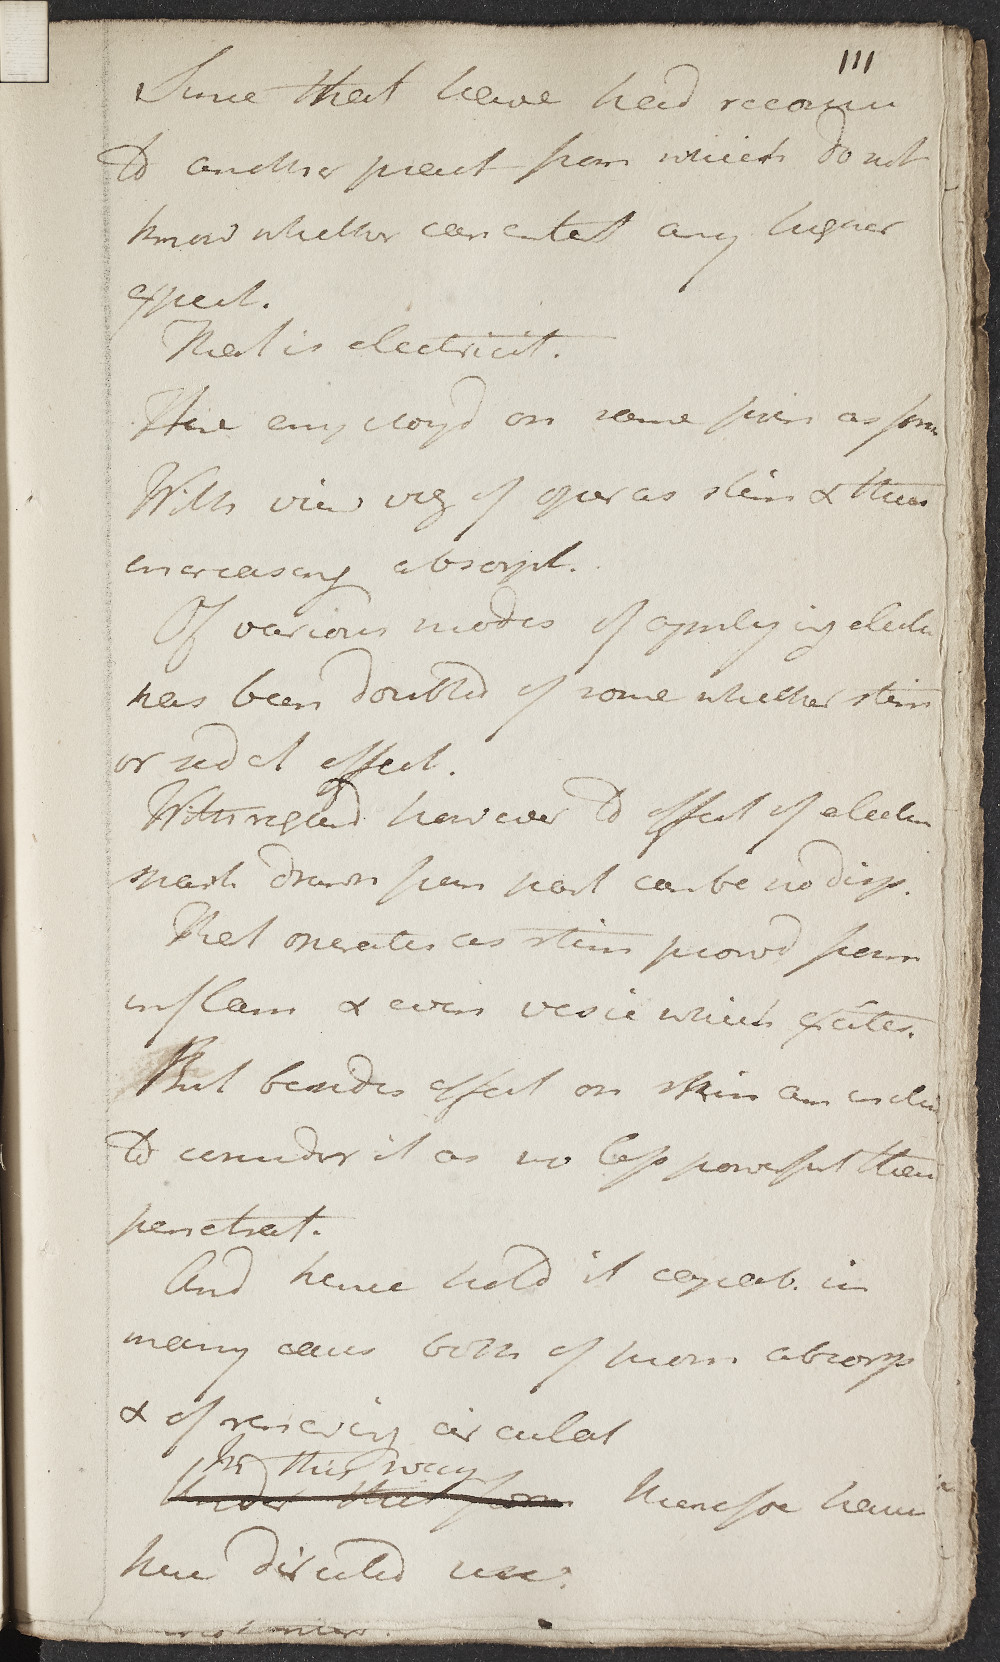 111
Since that have had recour
to another pract from which do not
know whether can entert any higher
expect.
That is electricit.
Here employ'd on same prin as form
With view viz of oper as stim & thus
increasing absorpt.
Of various modes of applying electr
has been doubted of some whether stim
or sedat effect.
With regard however to effect of electr
spark drawn from part can be no disp.
That operates as stim prov'd from
inflam & even vesic which excites.
But besides effect on skin am inclin
to consider it as no less powerful than
penetrat.
And hence hold it capab. in
many cases both of prom absorp
& of renewing circulat
In this way
Under that form therefore have
here directed use.